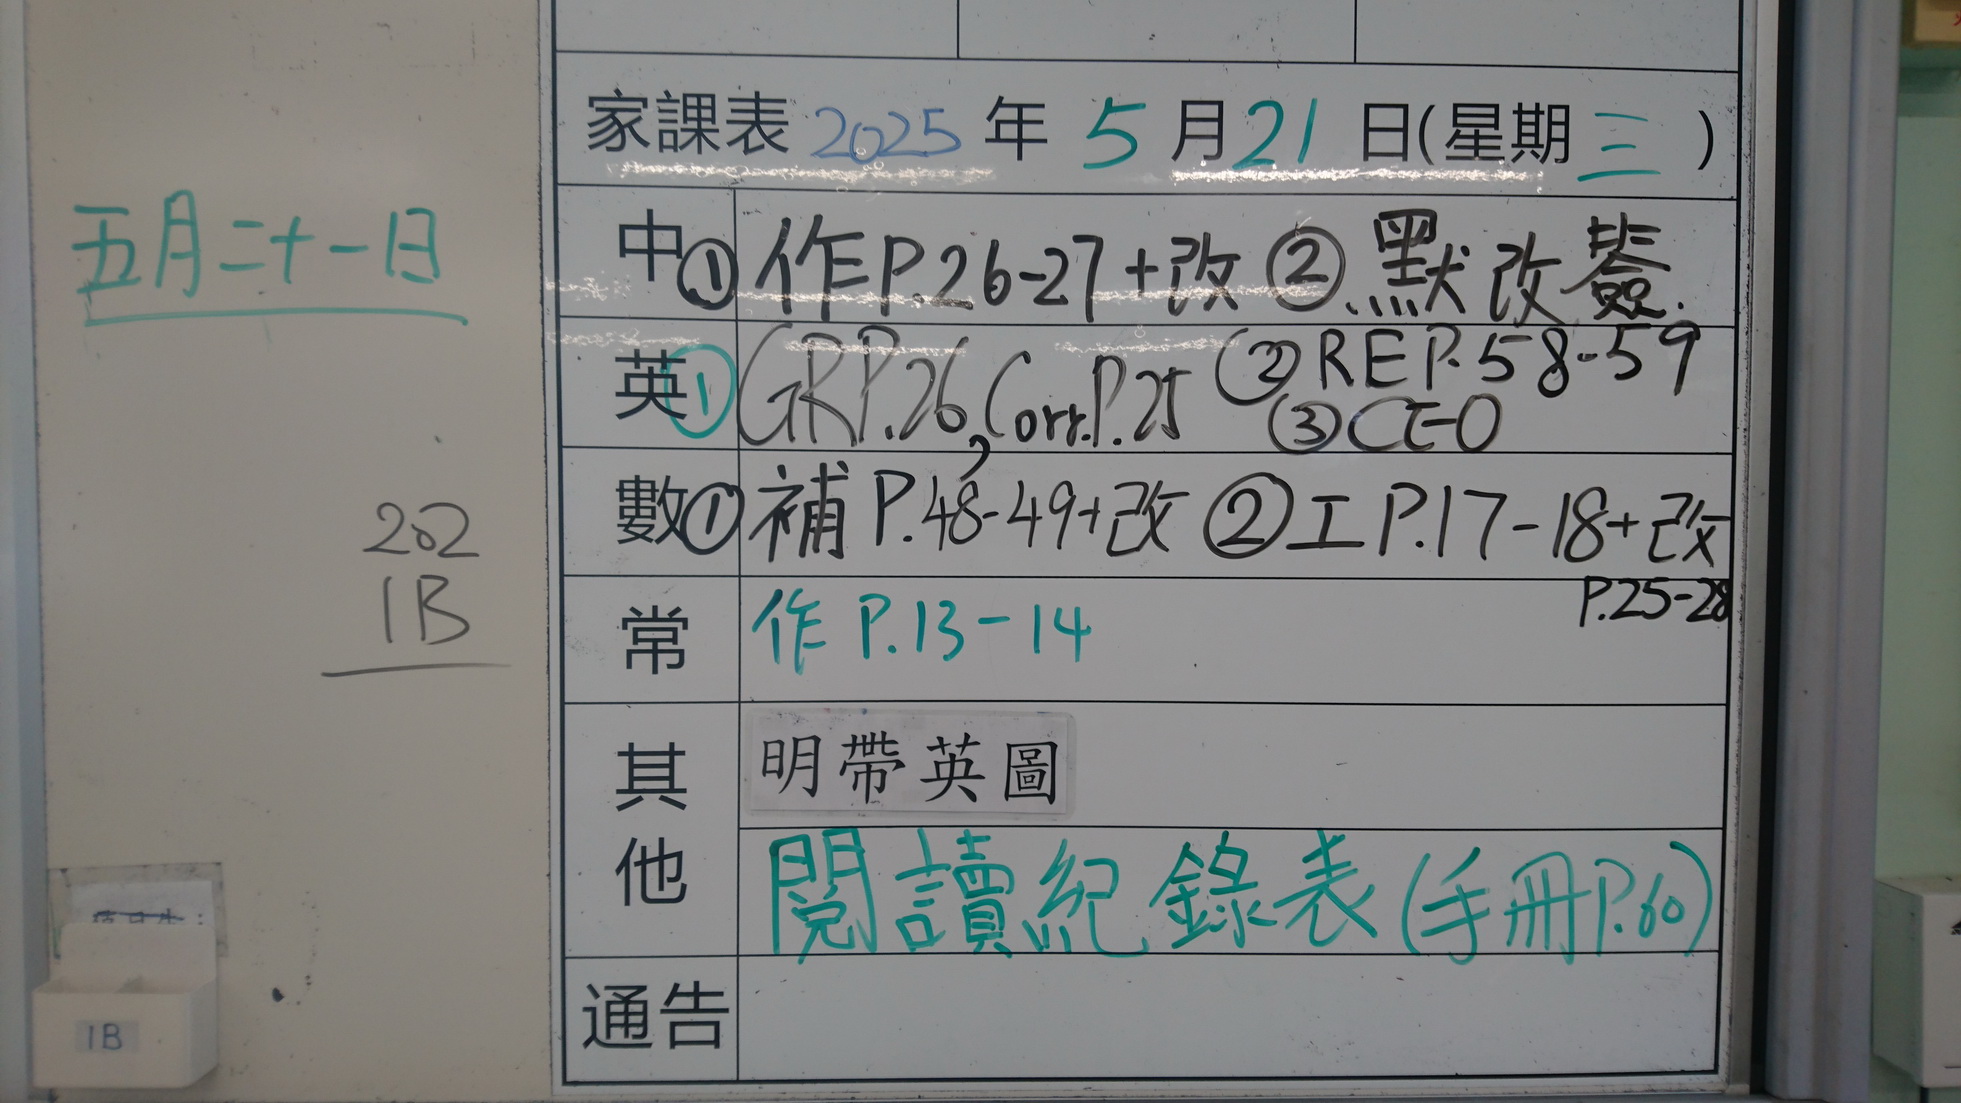 家課表 2025 年 5 月 21 日(星期 三 )
五月二十一日
中 ① 作P.26-27+改 ② 默改簽.
英 ① GRP.26, Corr.P.25 ② REP.58-59
③ CE-O
數 ① 補P.48-49+改 ② 工P.17-18+改
P.25-28
202
1B
常 作 P.13-14
其他 明帶英圖
閱讀紀錄表(手冊P.60)
通告
1B